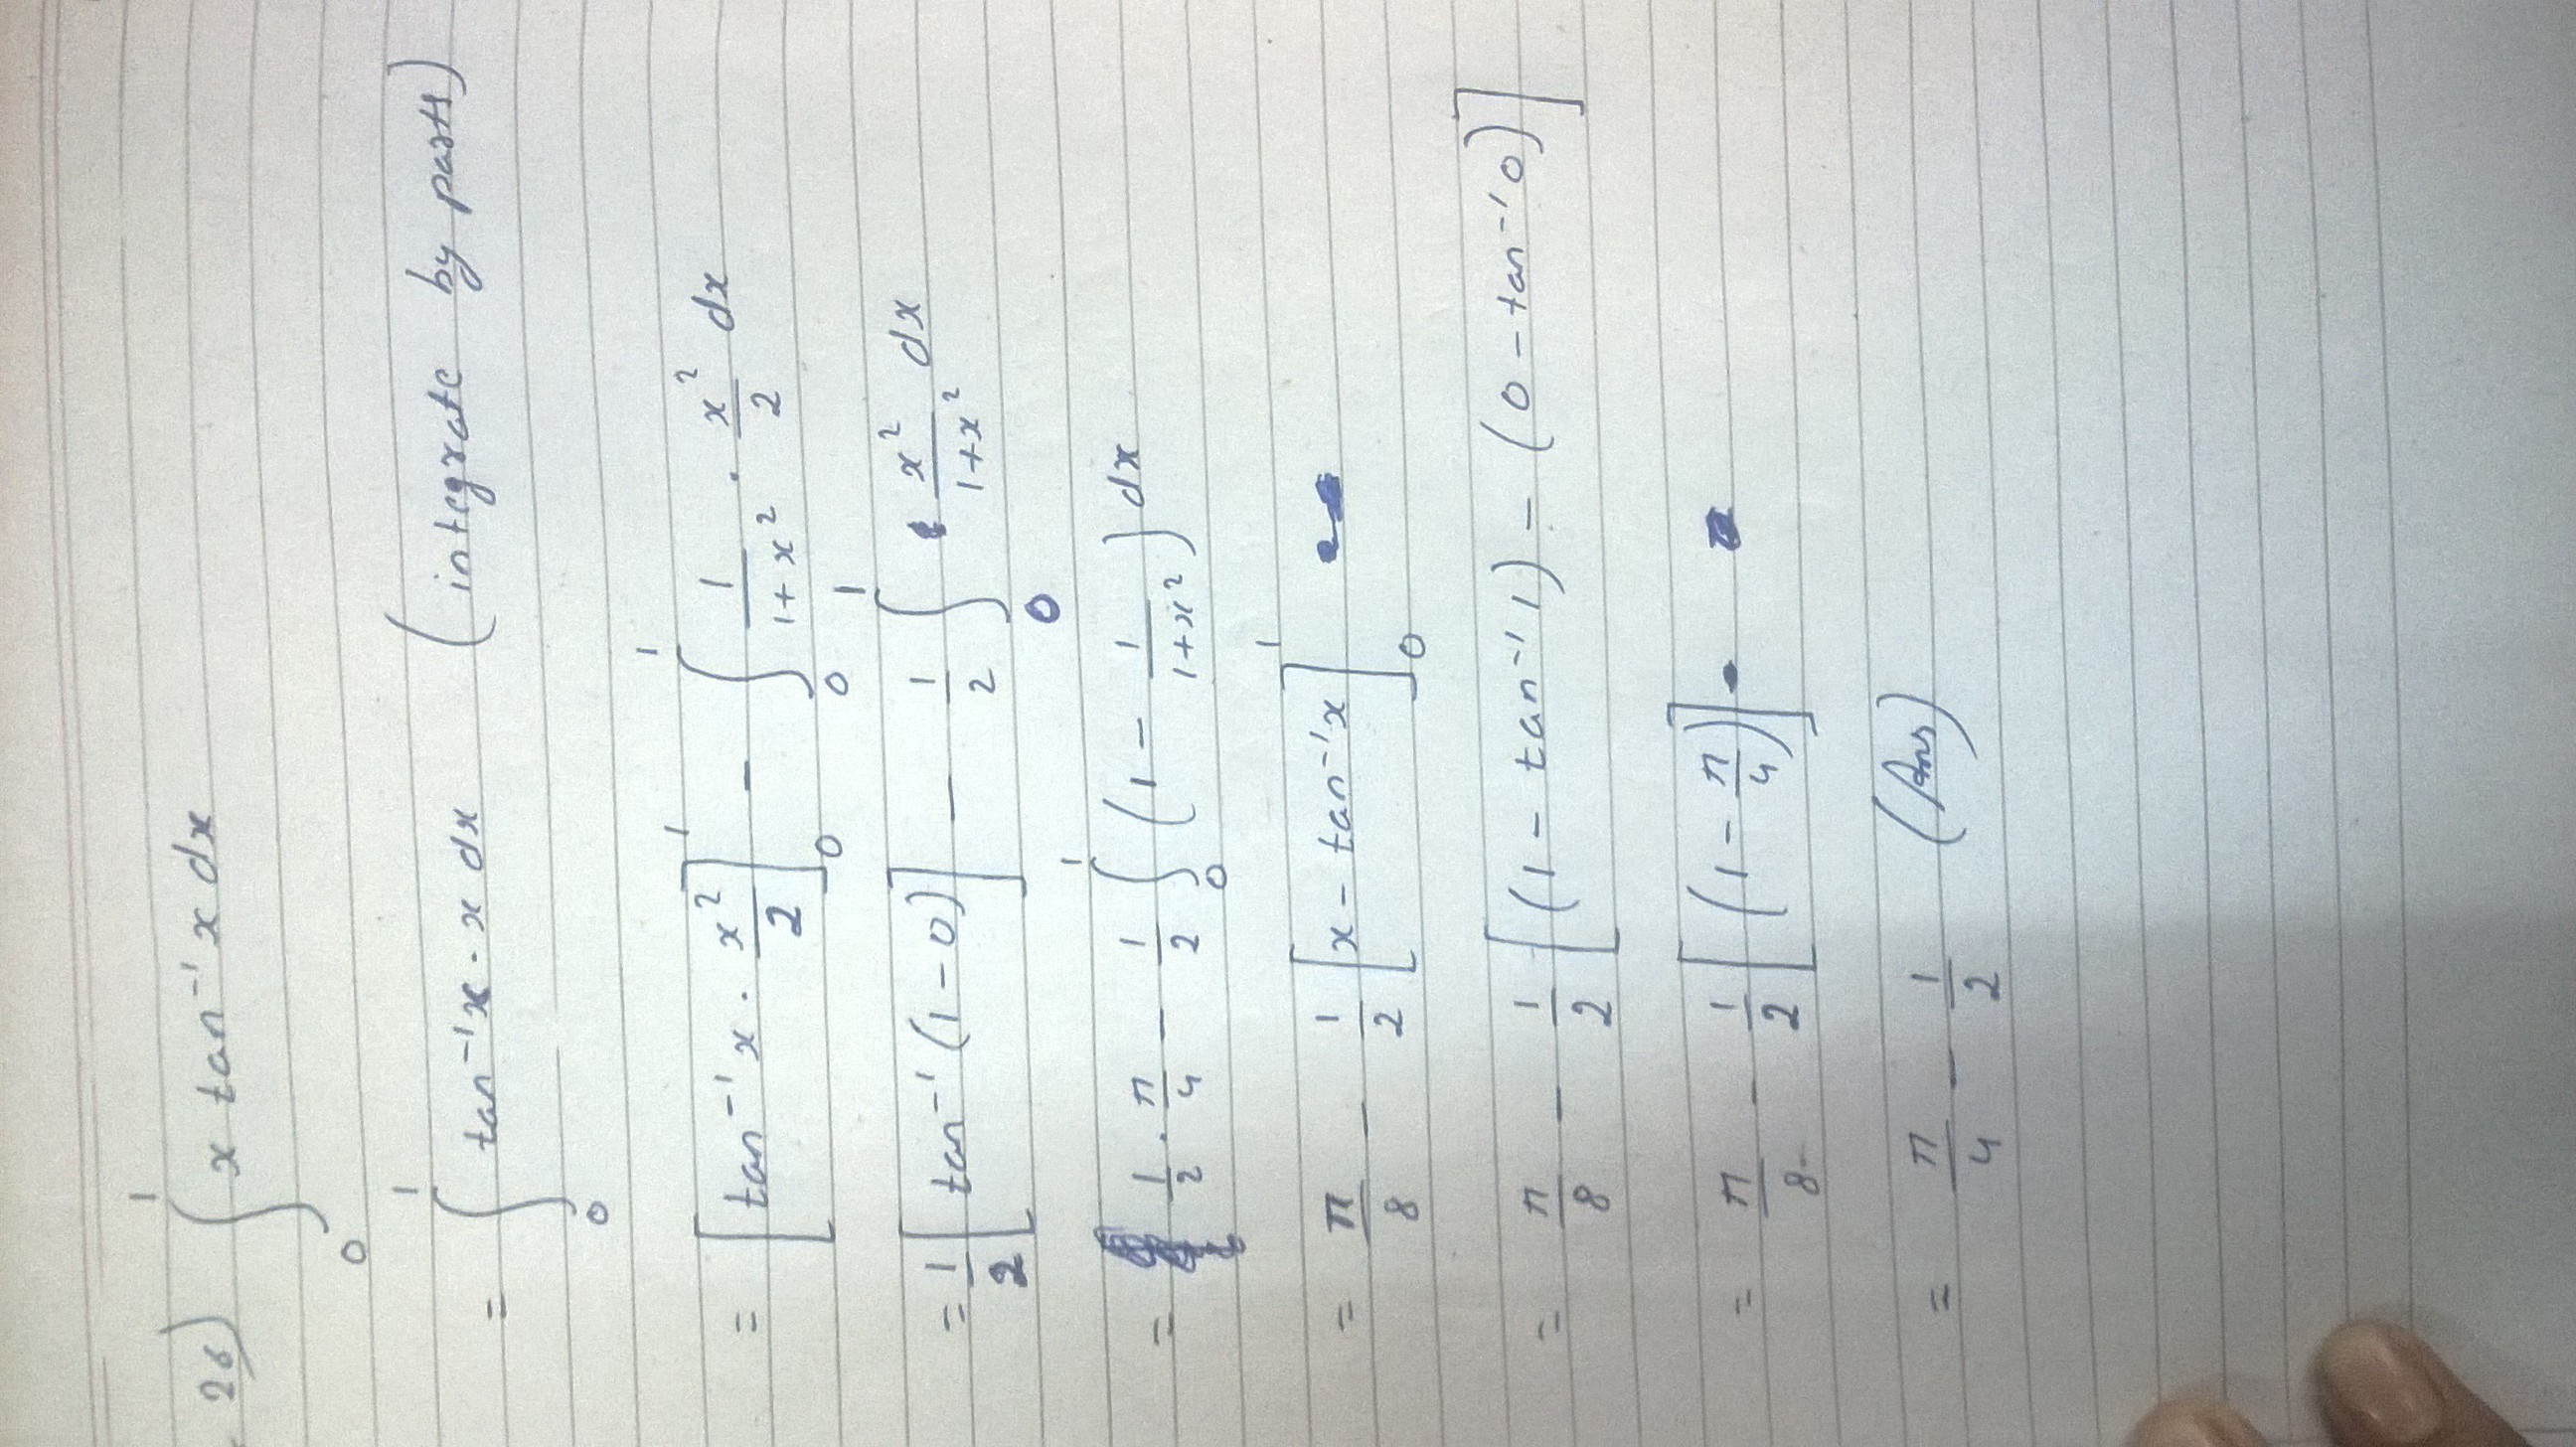 26) ∫₀¹ x tan⁻¹x dx
= ∫₀¹ tan⁻¹x · x dx (integrate by parts)
= [tan⁻¹x · x²/2]₀¹ − ∫₀¹ 1/(1+x²) · x²/2 dx
= 1/2 [tan⁻¹(1−0)] − 1/2 ∫₀¹ x²/(1+x²) dx
= 1/2 · π/4 − 1/2 ∫₀¹ (1 − 1/(1+x²)) dx
= π/8 − 1/2 [x − tan⁻¹x]₀¹
= π/8 − 1/2 [(1 − tan⁻¹1) − (0 − tan⁻¹0)]
= π/8 − 1/2 [(1 − π/4)]
= π/4 − 1/2 (Ans)